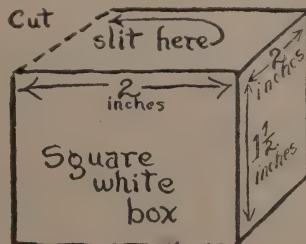 Cut
slit here
2
inches
2
inches
1 1/2
inches
Square
white
box